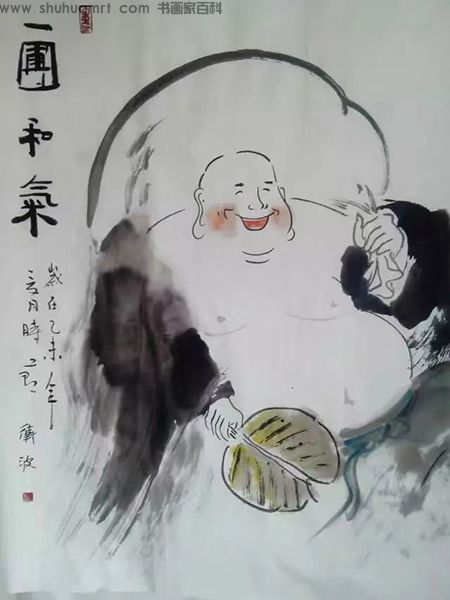 www.shuhuamrt.com 书画家百科
一團和氣
歲在乙未年
月時
波